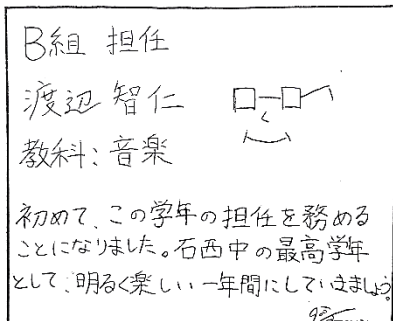 B組 担任
渡辺 智仁
教科：音楽
初めて、この学年の担任を務める
ことになりました。石西中の最高学年
として、明るく楽しい一年間にしていきましょう。